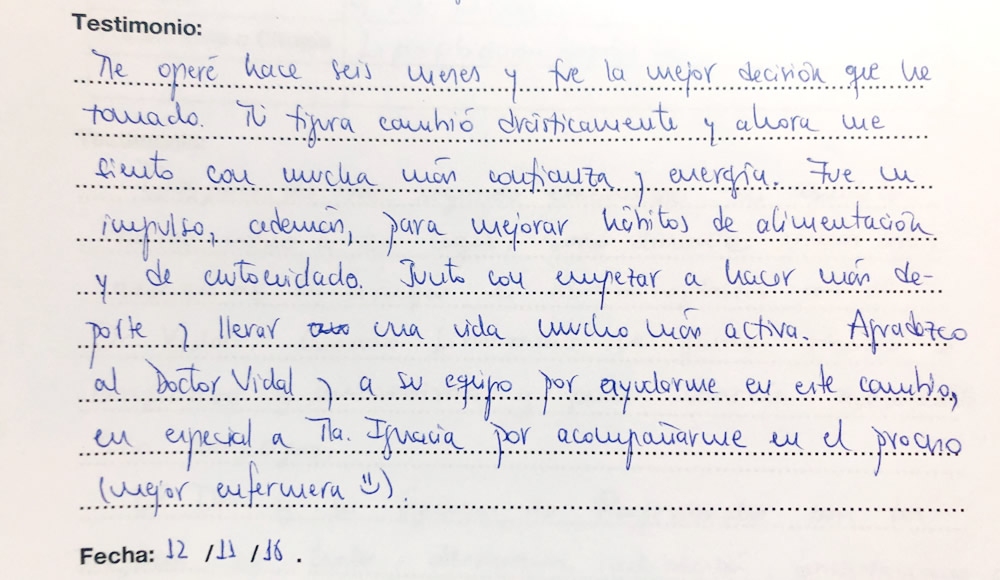 Testimonio:
Me operé hace seis meses y fue la mejor decisión que he
tomado. Mi figura cambió drásticamente y ahora me
siento con mucha más confianza y energía. Fue un
impulso, además, para mejorar hábitos de alimentación
y de autocuidado. Junto con empezar a hacer más de-
porte y llevar una vida mucho más activa. Agradezco
al Doctor Vidal y a su equipo por ayudarme en este cambio,
en especial a Ma. Ignacia por acompañarme en el proceso
(mejor enfermera ☺).
Fecha: 12 /11 /16 .